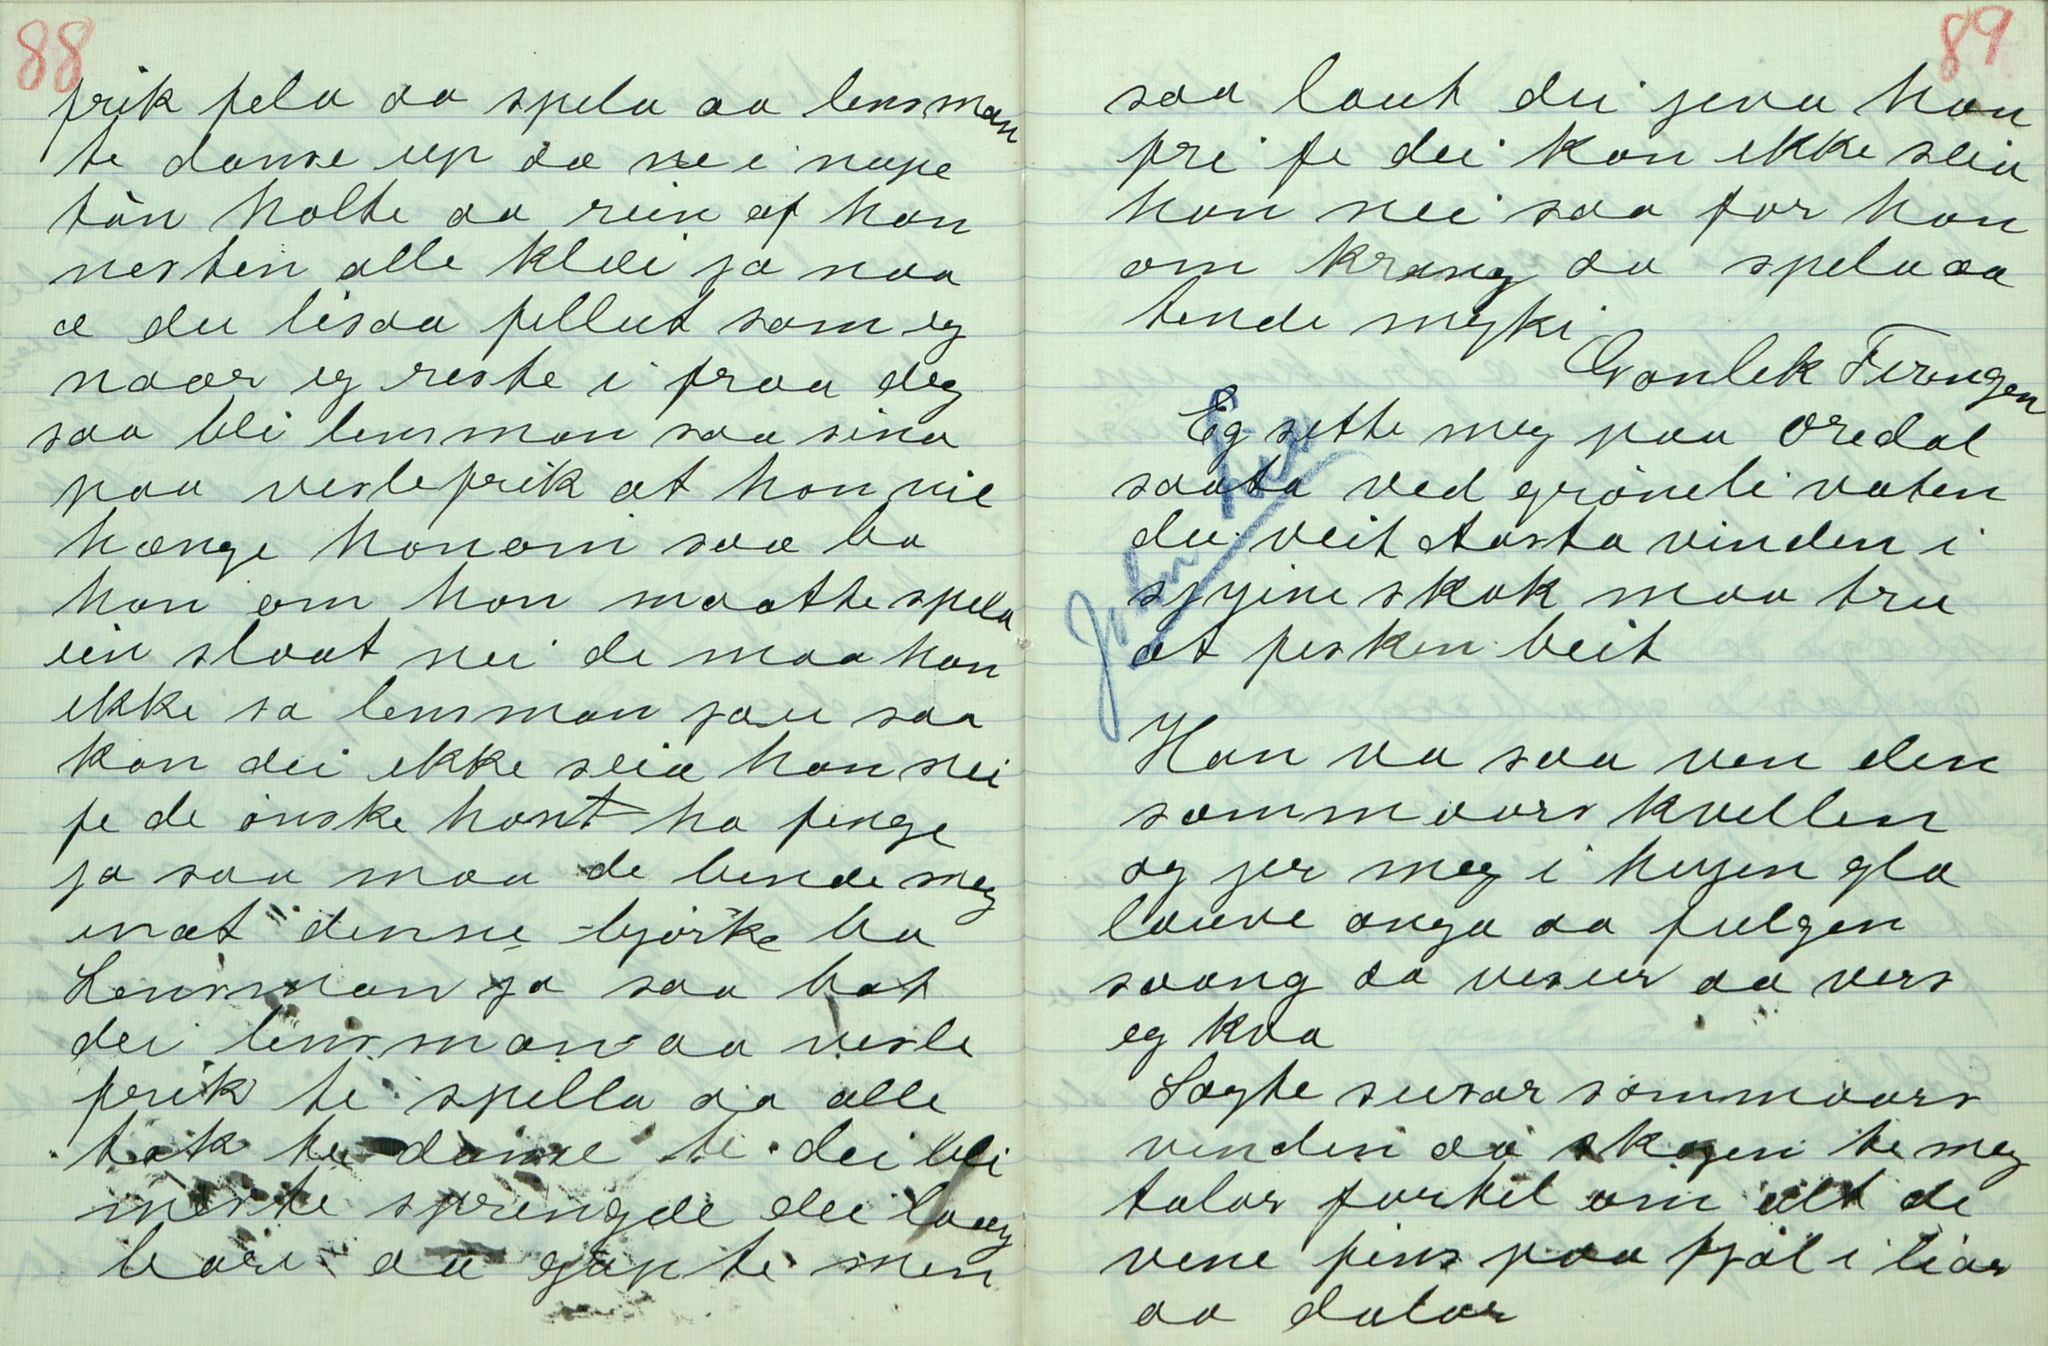 88
frik fela aa spela aa lensman
te danse up aa ne i nupe
tån holte aa rein af han
nesten alle klæi ja naa
æ du lisaa fellut som eg
naar eg reste i fraa deg
saa bli lensman saa sina
paa veslefrik at han vil
hænge honom saa ba
han om han maatte spela
ein slaat nei de maa han
ikke sa lensman jau saa
kan dei ikke seia han nei
fe de ønske hant ha fenge
ja saa maa de bende meg
inat denne bjørke ba
Lensman ja saa bat
dei lensman aa vesle
frik te spella aa alle
tok te danse te dei bli
inerste sprengde dei laag
bare aa gapte men
89
saa laut dei jeva han
fri fe dei kan ikke seia
han nei saa for han
om kræng aa spela aa
tende myki
Gonlek Firingen
Eg sette meg paa oredal
saata ved grøneli vaten
du veit astavinden i
syjine skok maa tru
at fesken beit
John
Han va saa ven den
sommaars kvellen
og jer meg i hugen gla
lauve anga aa fulgen
saang aa visur aa vers
eg kva
Sagte susar sommaars
vinden aa skogen te meg
talar fortel om alt de
vene fins paa fjøl i liar
aa dalar